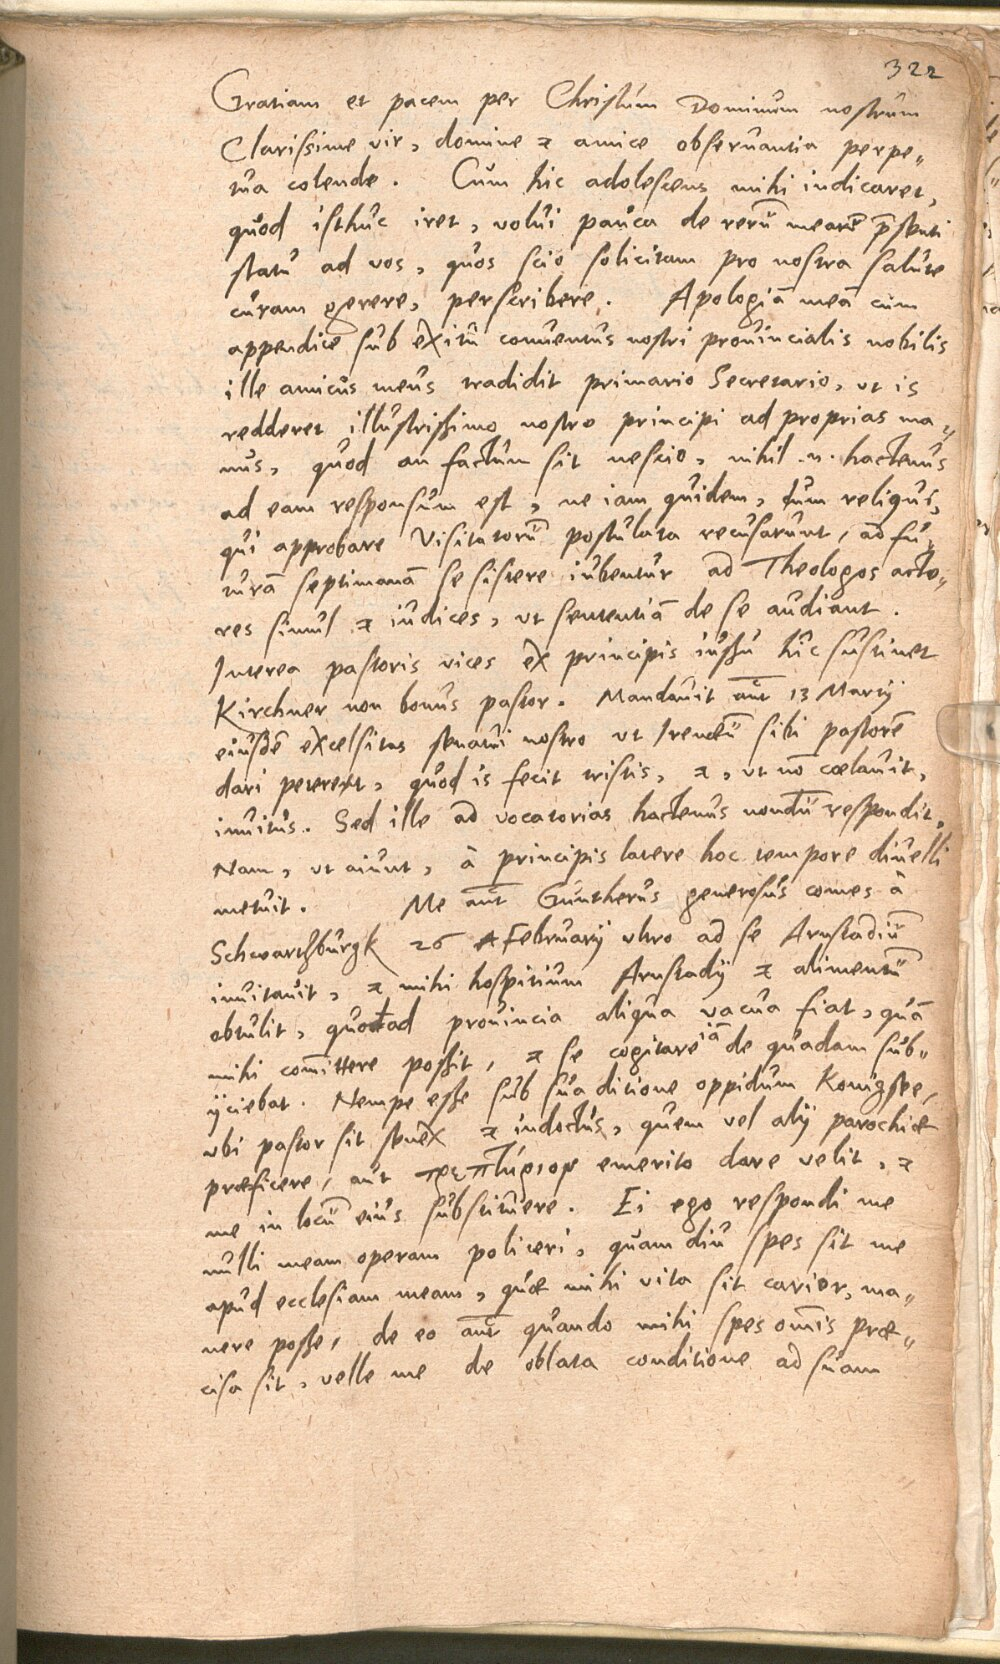 322
Gratiam et pacem per Christum Dominum nostrum
Clarissime vir, domine & amice obseruantia perpe„
tua colende. Cum hic adolescens mihi indicaret,
quod isthuc iret, volui pauca de rerū mearū p̄senti
statu ad vos, quos scio solicitam pro nostra salute
curam gerere, perscribere. Apologiā meā cum
appendice sub exitū conuentus nostri prouincialis nobilis
ille amicus meus tradidit primario Secretario, vt is
redderet illustrissimo nostro principi ad proprias ma„
nus, quod an factum sit nescio, nihil .n. hactenus
ad eam responsum est, ne iam quidem, cum reliqui,
qui approbare Visitatorū postulata recusarunt, ad fu„
turā septimanā se sistere iubentur ad Theologos acto„
res simul & iudices, vt sententiā de se audiant.
Interea pastoris vices ex principis iussu hic sustinet
Kirchner non bonus pastor. Mandauit aūt 13 Martij
eiusdē excelsitas senatui nostro vt Irenæū sibi pastorē
dari peteret, quod is fecit tristis, &, vt nō cœlauit,
inuitus. Sed ille ad vocatorias hactenus nondū respondit,
Nam, vt aiunt, à principis latere hoc tempore diuelli
metuit. Me aūt Guntherus generosus comes à
Schwartzburgk 26 February vltro ad se Arnstadiū
inuitauit, & mihi hospitium Arnstadij & alimentū
obtulit, quoad prouincia aliqua vacua fiat, quā
mihi com̄ittere possit, & se cogitare iā de quadam sub„
ijciebat. Nempe esse sub sua ditione oppidum Konigsee,
vbi pastor sit senex & indoctus, quem vel alij parochiæ
præficere, aut emerito dare velit, &
me in locū eius substituere. Ei ego respondi me
nulli meam operam policeri, quam diu spes sit me
apud ecclesiam meam, quæ mihi vita sit carior, ma„
nere posse, de eo aūt quando mihi spes om̄is præ„
cisa sit, velle me de oblata conditione ad suam